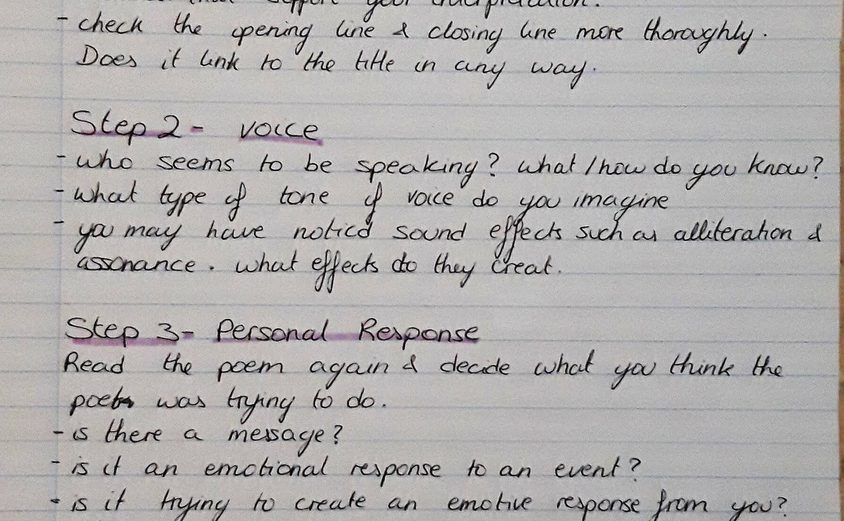 support your
- check the opening line & closing line more thoroughly.
Does it link to the title in any way.
Step 2 - voice
- who seems to be speaking? what / how do you know?
- what type of tone of voice do you imagine
- you may have noticd sound effects such as alliteration &
assonance. what effects do they creat.
Step 3 - Personal Response
Read the poem again & decide what you think the
poet was trying to do.
- is there a message?
- is it an emotional response to an event?
- is it trying to create an emotive response from you?